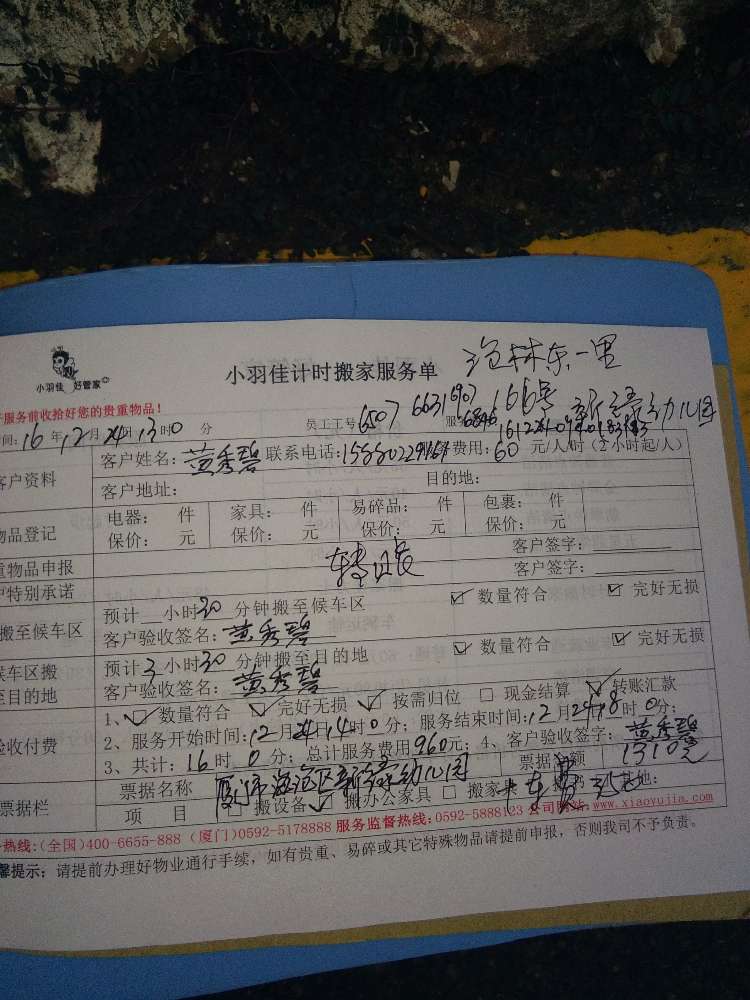 小羽佳 好管家
小羽佳计时搬家服务单
林东一里
166号
服务前收拾好您的贵重物品!
间:16年12月24日13时0分 员工工号6507 6631 6907
客户资料 客户姓名:黄秀碧 联系电话: 费用:60元/人/时(2小时起/人)
客户地址: 目的地:
物品登记 电器: 件 家具: 件 易碎品: 件 包裹: 件
保价: 元 保价: 元 保价: 元 保价: 元
重物品申报 客户签字:
户特别承诺 转账 客户签字:
搬至候车区 预计 小时30分钟搬至候车区 数量符合 完好无损
客户验收签名:黄秀碧
候车区搬至目的地 预计3小时30分钟搬至目的地 数量符合 完好无损
客户验收签名:黄秀碧
验收付费 1、数量符合 完好无损 按需归位 现金结算 转账汇款
2、服务开始时间:12月24日14时0分;服务结束时间:12月24日18时0分;
3、共计:16时0分;总计服务费用960元;4、客户验收签字:黄秀碧
票据栏 票据名称 厦门市海沧区新绿幼儿园 票据金额 1310元
项 目 搬设备 搬办公家具 搬家 车费350 其他:
热线:(全国)400-6655-888 (厦门)0592-5178888 服务监督热线:0592-5888123 公司网站:www.xiaoyujia.com
馨提示:请提前办理好物业通行手续,如有贵重、易碎或其它特殊物品请提前申报,否则我司不予负责。